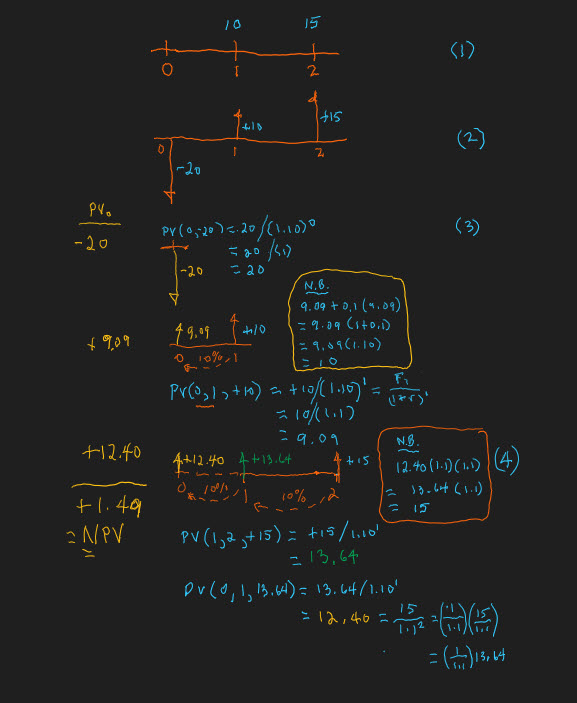 10 15
0 1 2 (1)
+10 +15
0 1 2 (2)
-20
PV₀
-20
PV(0,-20) = -20/(1.10)⁰ (3)
= 20/(1)
= 20
-20
N.B.
9.09 + 0.1(9.09)
= 9.09 (1+0.1)
= 9.09 (1.10)
= 10
+9.09
9.09 +10
0 10% 1
PV(0,1,+10) = +10/(1.10)¹ = F₁/(1+r)¹
= 10/(1.1)
= 9.09
+12.40
+12.40 +13.64 +15
0 10% 1 10% 2
N.B.
12.40(1.1)(1.1)
= 13.64 (1.1)
= 15
(4)
+1.49
= NPV
PV(1,2,+15) = +15/1.10¹
= 13.64
PV(0,1,13.64) = 13.64/1.10¹
= 12.40 = 15/1.1² = (1/1.1)(15/1.1)
= (1/1.1)13.64